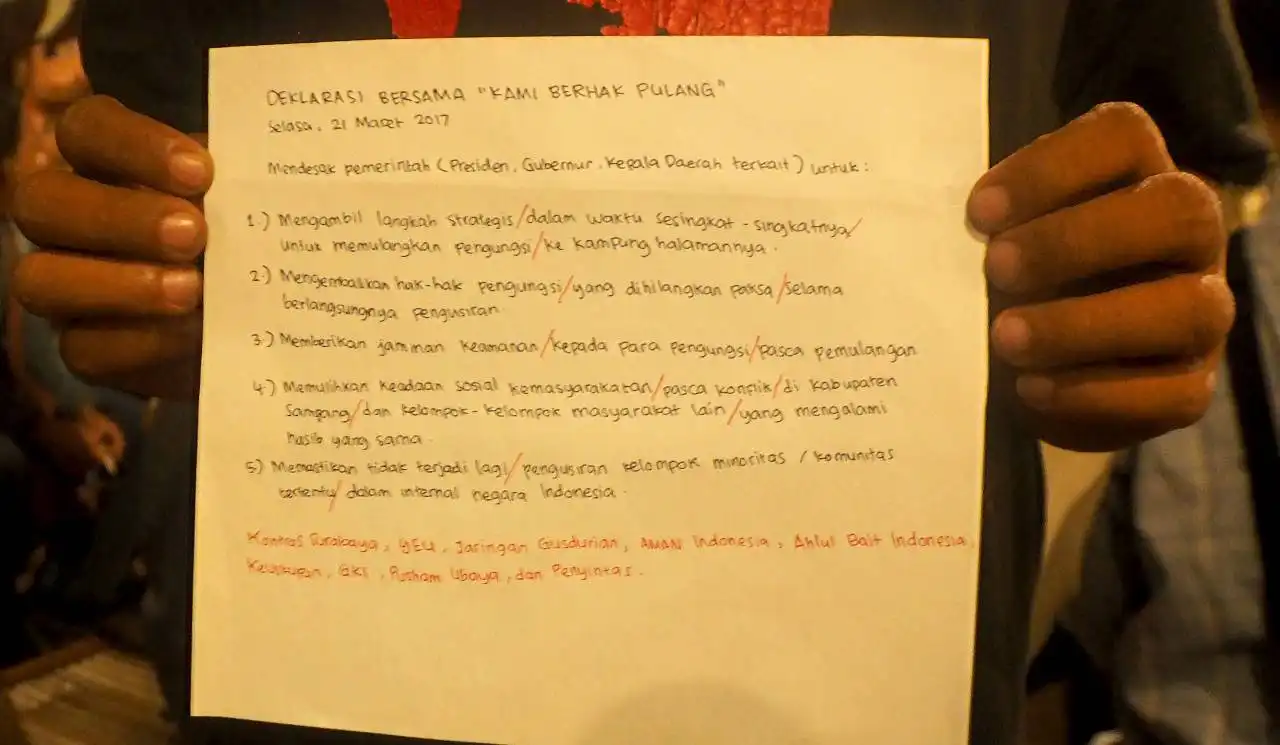 DEKLARASI BERSAMA "KAMI BERHAK PULANG"
Selasa, 21 Maret 2017
Mendesak pemerintah (Presiden, Gubernur, Kepala Daerah terkait) untuk :
1.) Mengambil langkah strategis/dalam waktu sesingkat-singkatnya/
untuk memulangkan pengungsi/ke kampung halamannya.
2.) Mengembalikan hak-hak pengungsi/yang dihilangkan paksa/selama
berlangsungnya pengusiran.
3.) Memberikan jaminan keamanan/kepada para pengungsi/pasca pemulangan
4.) Memulihkan keadaan sosial kemasyarakatan/pasca konflik/di Kabupaten
Sampang/dan kelompok-kelompok masyarakat lain/yang mengalami
nasib yang sama.
5) Memastikan tidak terjadi lagi/pengusiran kelompok minoritas / komunitas
tertentu/dalam internal negara Indonesia.
Kontras Surabaya, YEU, Jaringan Gusdurian, AMAN Indonesia, Ahlul Bait Indonesia,
Keuskupan, GKI, Pusham Ubaya, dan Penyintas.